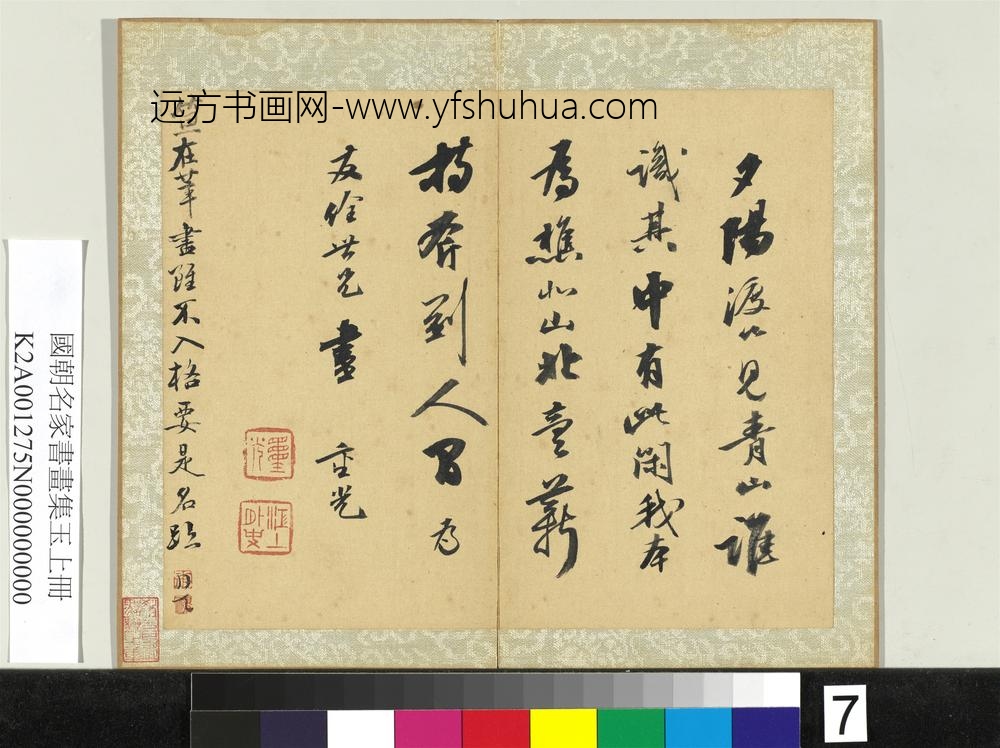 远方书画网-www.yfshuhua.com
夕陽渡口見青山誰
識其中有此閑我本
為樵北山北賣薪
持斧到人間 為
友徐世兄書 重光
重光
江上外史
在筆 畫雖不入格要是名跡
國朝名家書畫集玉上冊
K2A001275N000000000
7